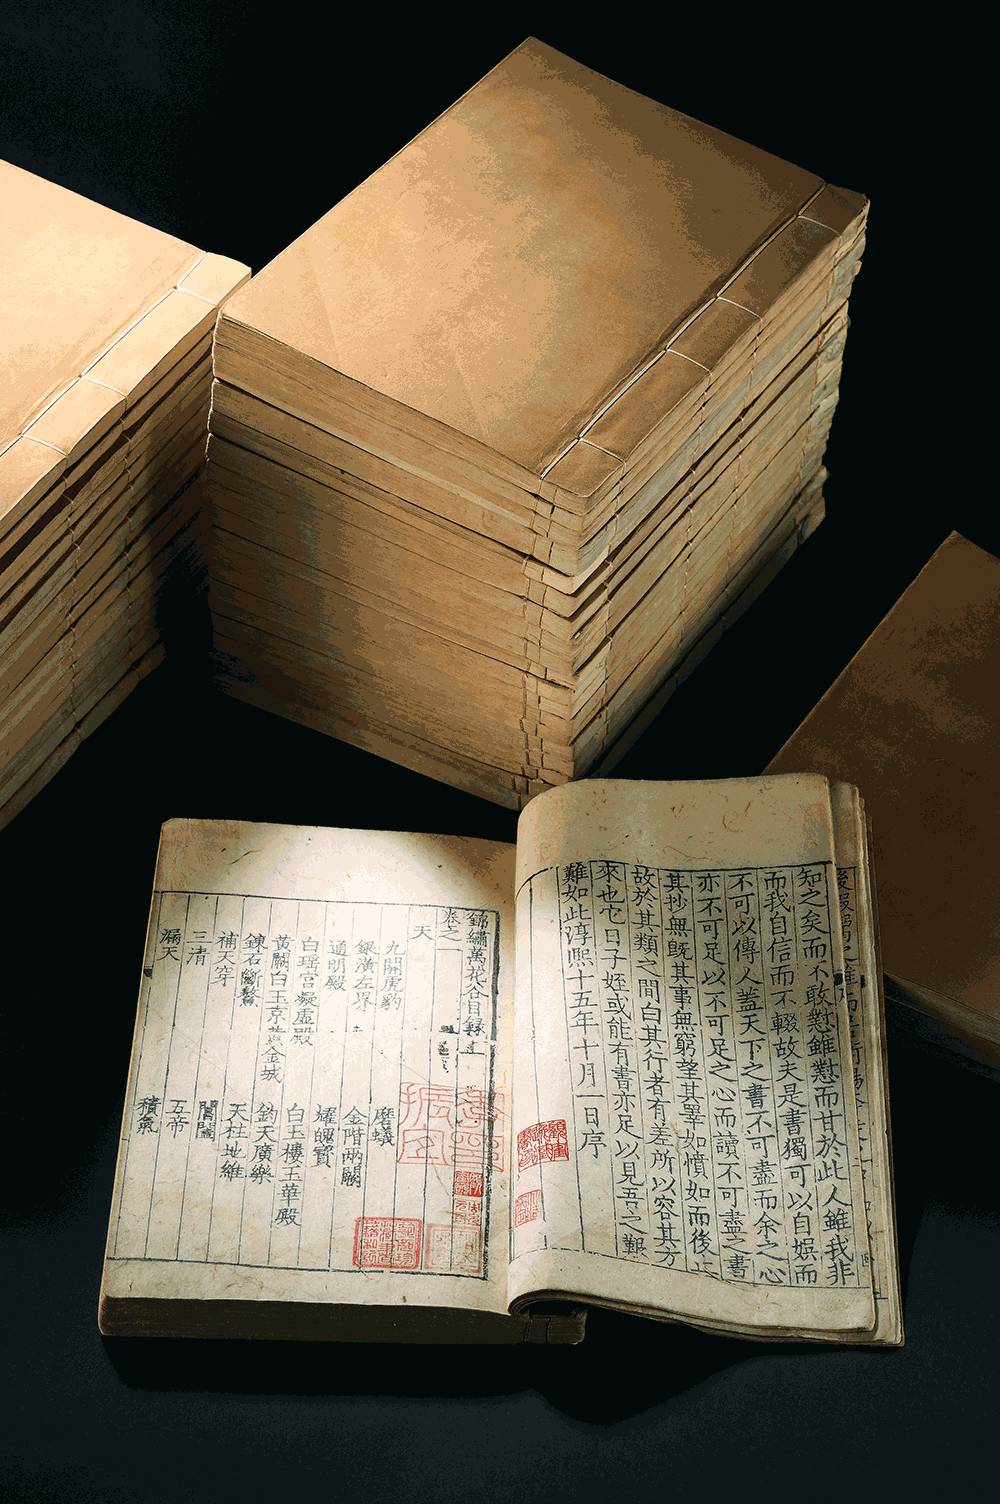 知之矣而不敢懟雖懟而甘於此人雖我非
而我自信而不輟故夫是書獨可以自娛而
不可以傳人蓋天下之書不可盡而余之心
亦不可足以不可足之心而讀不可盡之書
其抄無旣其事無窮望其睪如憤如而後止
故於其類之間白其行者有差所以容其方
來也它日子姪或能有書亦足以見吾之艱
難如此淳熙十五年十月一日序
錦繡萬花谷目録
卷之一
天
九關虎豹 磨蟻
銀潢左界 金階兩闕
通明殿 耀魄寶
白瑶宫凝虛殿 白玉樓玉華殿
黃闕白玉京黃金城 鈞天廣樂
鍊石斷鰲 天柱地維
補天穿 閶闔
三清 五帝
漏天 積氣